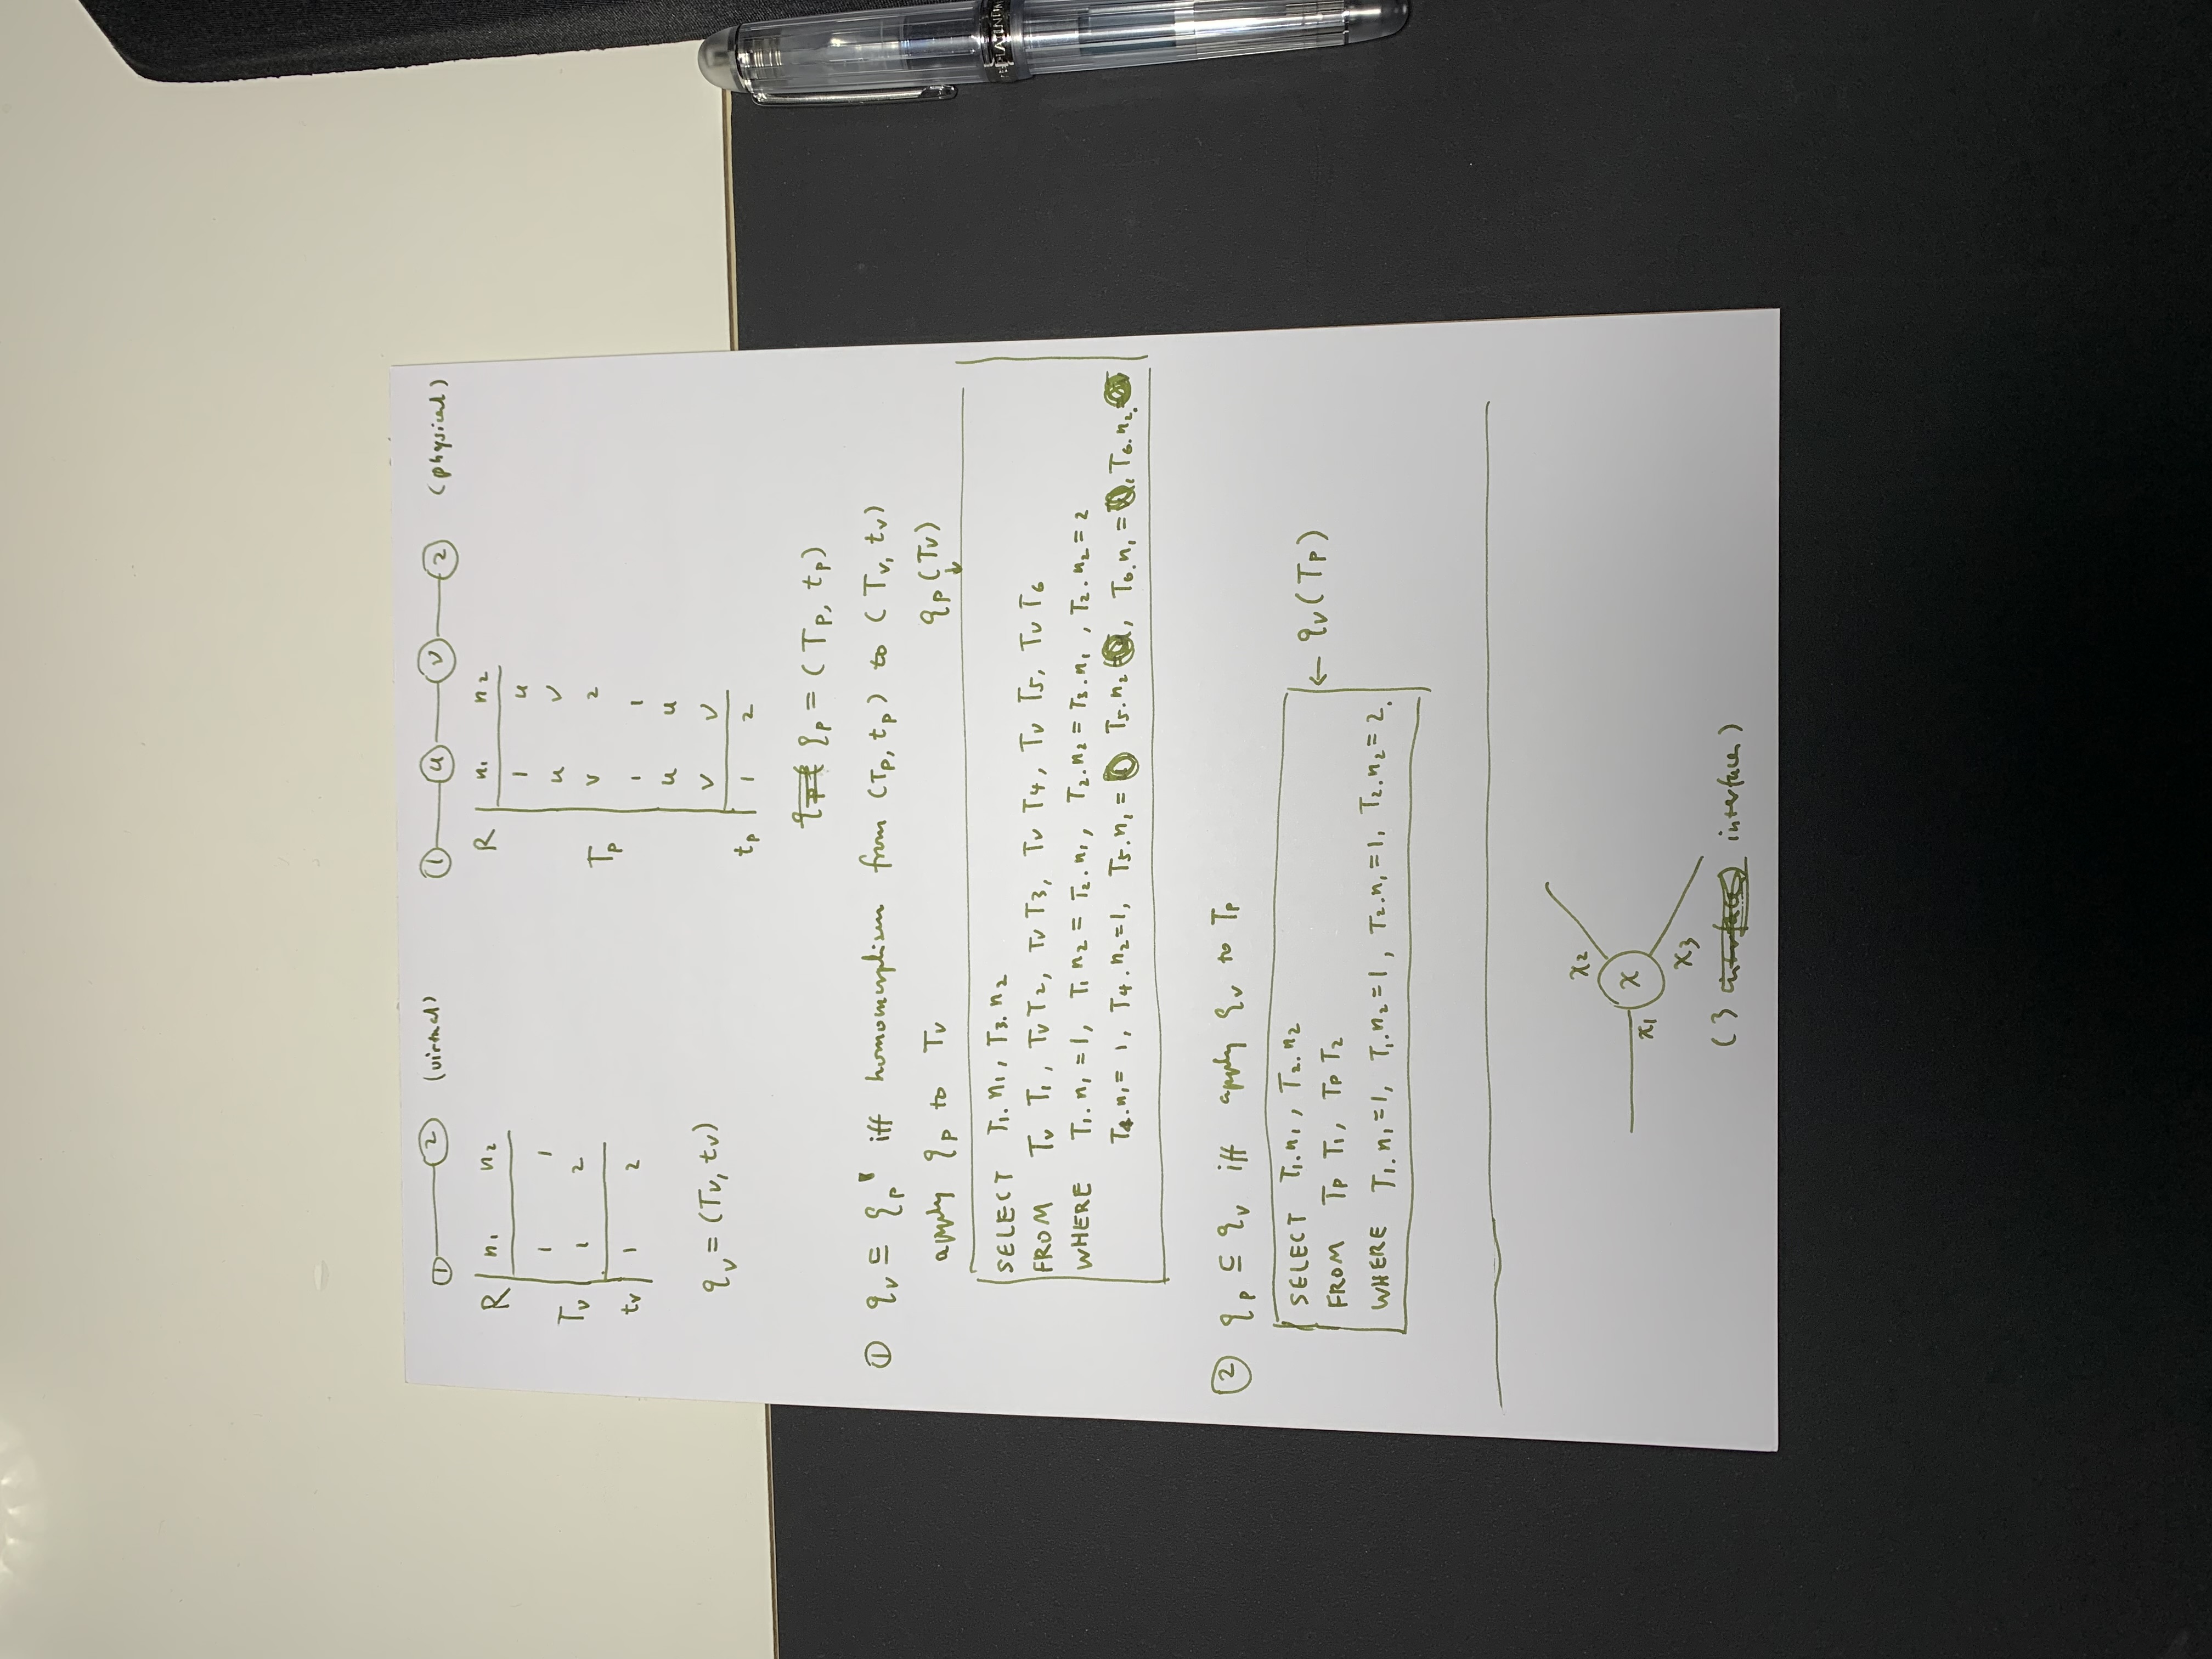 1 2 (virtual)
R n₁ n₂
1 1
Tᵥ 1 2
tᵥ 1 2
qᵥ = (Tᵥ, tᵥ)
1 u v 2 (physical)
R n₁ n₂
1 u
u v
Tₚ v 2
1 1
u u
v v
tₚ 1 2
qₚ = (Tₚ, tₚ)
① qᵥ ⊆ qₚ iff homomorphism from (Tₚ, tₚ) to (Tᵥ, tᵥ)
apply qₚ to Tᵥ qₚ(Tᵥ)
↓
SELECT T₁.n₁, T₃.n₂
FROM Tᵥ T₁, Tᵥ T₂, Tᵥ T₃, Tᵥ T₄, Tᵥ T₅, Tᵥ T₆
WHERE T₁.n₁ = 1, T₁ n₂ = T₂.n₁, T₂.n₂ = T₃.n₁, T₂.n₂ = 2
T₄.n₁ = 1, T₄.n₂ = 1, T₅.n₁ = T₅.n₂ , T₆.n₁ = , T₆.n₂
② qₚ ⊆ qᵥ iff apply qᵥ to Tₚ
SELECT T₁.n₁, T₂.n₂
FROM Tₚ T₁, Tₚ T₂ ← qᵥ(Tₚ)
WHERE T₁.n₁ = 1, T₁.n₂ = 1, T₂.n₁ = 1, T₂.n₂ = 2.
x₂
x
x₁
x₃
(3 interfaces)
PLATINUM